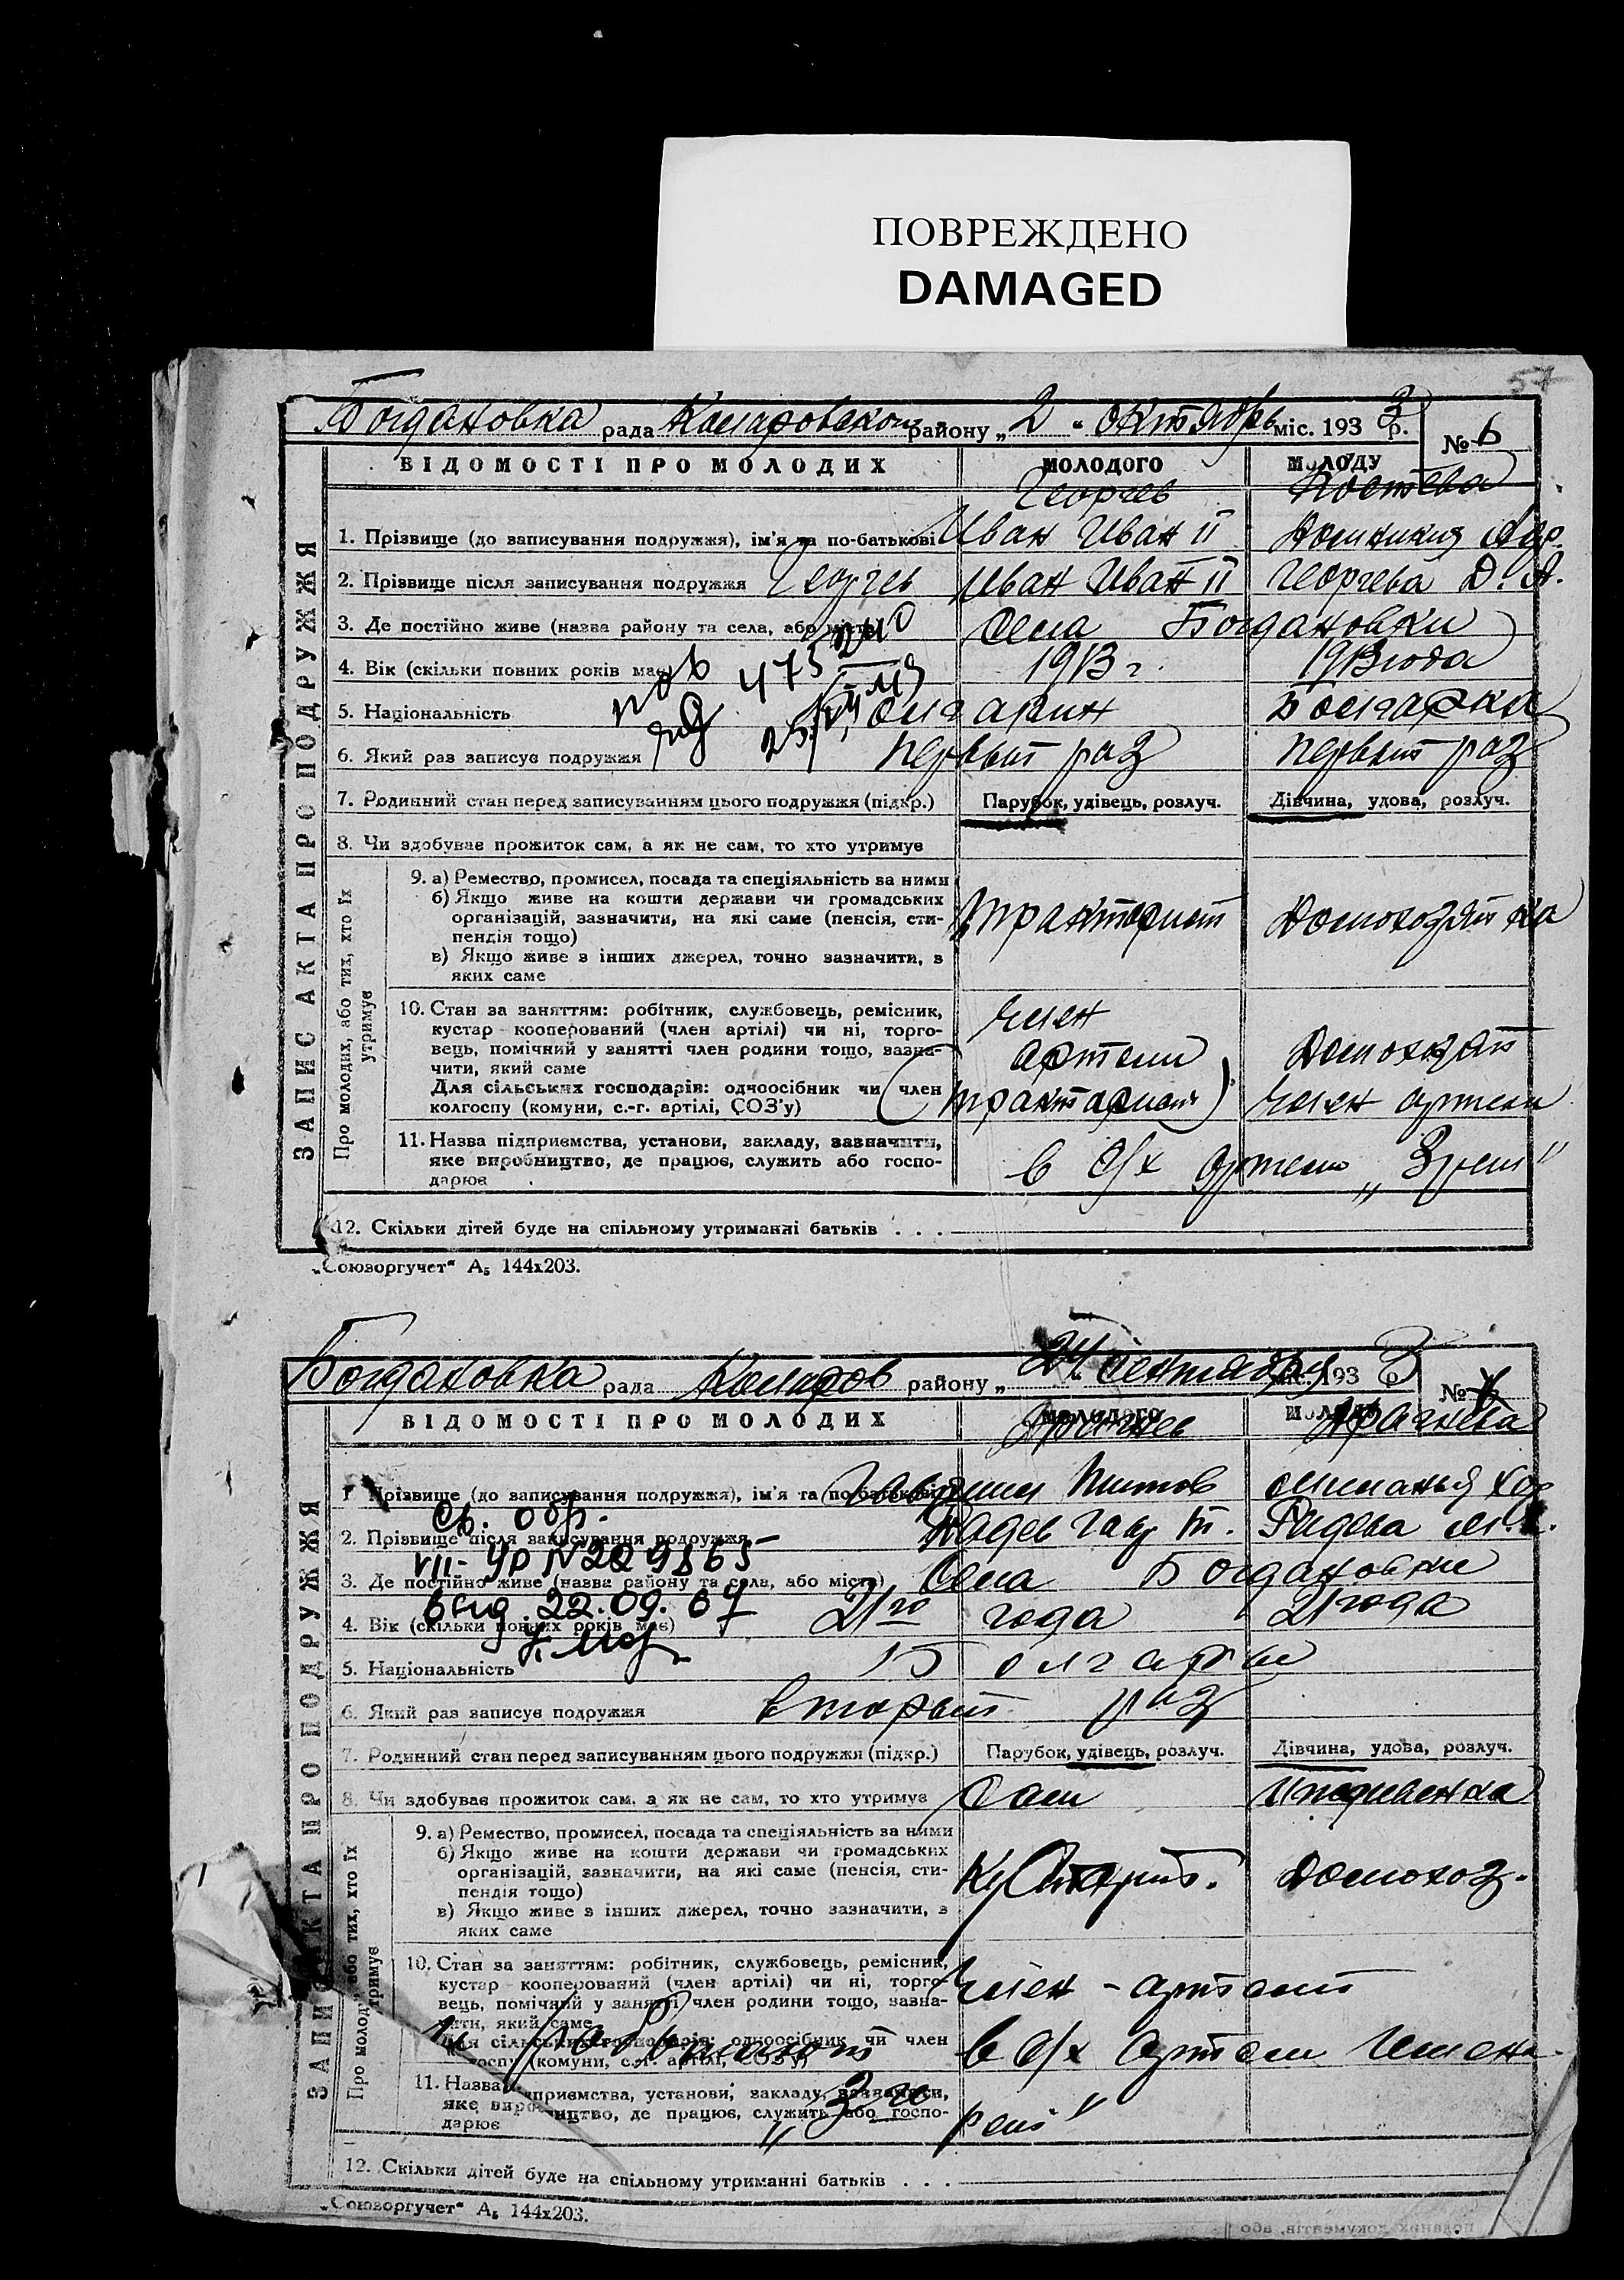 ПОВРЕЖДЕНО
DAMAGED
57
Богдановка рада Коларовского району „ 2 " октябрь міс. 1933 р. № 6
ВІДОМОСТІ ПРО МОЛОДИХ МОЛОДОГО МОЛОДУ
ЗАПИС АКТА ПРО ПОДРУЖЖЯ
Георгиев Костева
1. Прізвище (до записування подружжя), ім'я та по-батькові Иван Иван II Домникия
2. Прізвище після записування подружжя Георгиев Иван Иван II Георгиева Д. А.
3. Де постійно живе (назва району та села, або міста) Села Богдановки
4. Вік (скільки повних років має) 1913 г. 1913 года
5. Національність Болгарин Болгарка
6. Який раз записує подружжя первый раз первый раз
7. Родинний стан перед записуванням цього подружжя (підкр.) Парубок, удівець, розлуч. Дівчина, удова, розлуч.
8. Чи здобуває прожиток сам, а як не сам, то хто утримує
Про молодих, або тих, хто їх утримує
9. а) Ремество, промисел, посада та спеціяльність за ними
б) Якщо живе на кошти держави чи громадських
організацій, зазначити, на які саме (пенсія, сти-
пендія тощо)
в) Якщо живе з інших джерел, точно зазначити, з
яких саме
тракторист Домохозяйка
10. Стан за заняттям: робітник, службовець, ремісник,
кустар кооперований (член артілі) чи ні, торго-
вець, помічний у занятті член родини тощо, зазна-
чити, який саме
Для сільських господарів: одноосібник чи член
колгоспу (комуни, с.-г. артілі, СОЗ'у)
член
артели Домохозяй
(тракторист) член артели
11. Назва підприємства, установи, закладу, зазначити,
яке виробництво, де працює, служить або госпо-
дарює
в с/х артели
12. Скільки дітей буде на спільному утриманні батьків . . .
„Союзоргучет" А₅ 144х203.
Богдановка рада Коларов району „ 24 сентября 1933 р. №
ВІДОМОСТІ ПРО МОЛОДИХ МОЛОДОГО МОЛОДУ
ЗАПИС АКТА ПРО ПОДРУЖЖЯ
1. Прізвище (до записування подружжя), ім'я та по-батькові
2. Прізвище після записування подружжя
Св. обр.
VII-УР N 229865
3. Де постійно живе (назва району та села, або міста) Села Богдановки
выд. 22.09.67
4. Вік (скільки повних років має) 21го года 21 года
5. Національність Болгары
6. Який раз записує подружжя вторый раз
7. Родинний стан перед записуванням цього подружжя (підкр.) Парубок, удівець, розлуч. Дівчина, удова, розлуч.
8. Чи здобуває прожиток сам, а як не сам, то хто утримує Сам Иждивенка
Про молодих, або тих, хто їх утримує
9. а) Ремество, промисел, посада та спеціяльність за ними
б) Якщо живе на кошти держави чи громадських
організацій, зазначити, на які саме (пенсія, сти-
пендія тощо)
в) Якщо живе з інших джерел, точно зазначити, з
яких саме
Домохоз.
10. Стан за заняттям: робітник, службовець, ремісник,
кустар кооперований (член артілі) чи ні, торго-
вець, помічний у занятті член родини тощо, зазна-
чити, який саме
Для сільських господарів: одноосібник чи член
колгоспу (комуни, с.-г. артілі, СОЗ'у)
член - артели
в с/х артели
11. Назва підприємства, установи, закладу, зазначити,
яке виробництво, де працює, служить або госпо-
дарює
12. Скільки дітей буде на спільному утриманні батьків . . .
„Союзоргучет" А₅ 144х203.